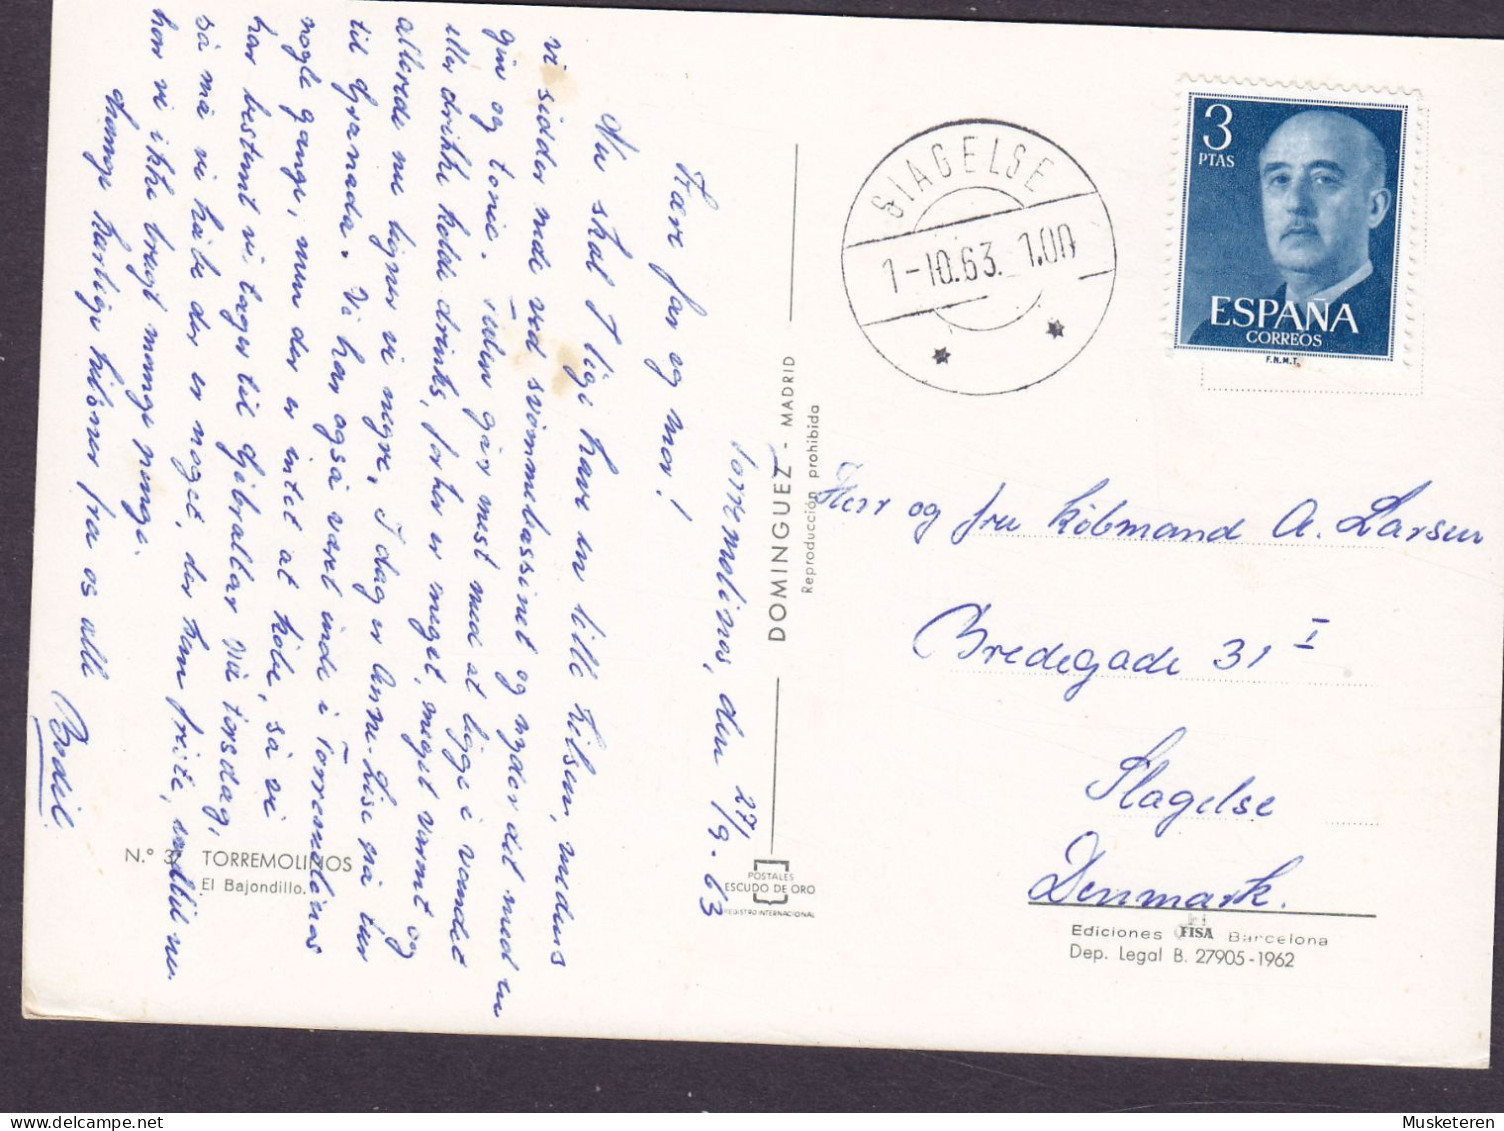 Torremolinos, den 27/9. 63
Kære far og mor!
Nu skal I lige have en lille hilsen, medens
vi sidder med ved svømmebassinet og nyder det med en
gin og tonic. Tiden går mest med at ligge i vandet
eller drikke kolde drinks, for her er meget, meget varmt og
allerede nu ligner vi negre. I dag er Anne-Lise på tur
til Granada. Vi har også været inde i Torremolinos
nogle gange, men der er intet at købe, så vi
har bestemt vi tager til Gibraltar på torsdag,
så må vi håbe der er noget, der kan friste, indtil nu
har vi ikke brugt mange penge.
Mange kærlige hilsner fra os alle
Bodil.
N.º 3 TORREMOLINOS
El Bajondillo.
DOMINGUEZ - MADRID
Reproducción prohibida
POSTALES
ESCUDO DE ORO
REGISTRO INTERNACIONAL
SLAGELSE
1-10.63. 1.00
3
PTAS
ESPAÑA
CORREOS
F.N.M.T.
Herr og fru Købmand A. Larsen
Bredegade 31 I
Slagelse
Denmark.
Ediciones FISA Barcelona
Dep. Legal B. 27905-1962
© delcampe.net
Musketeren